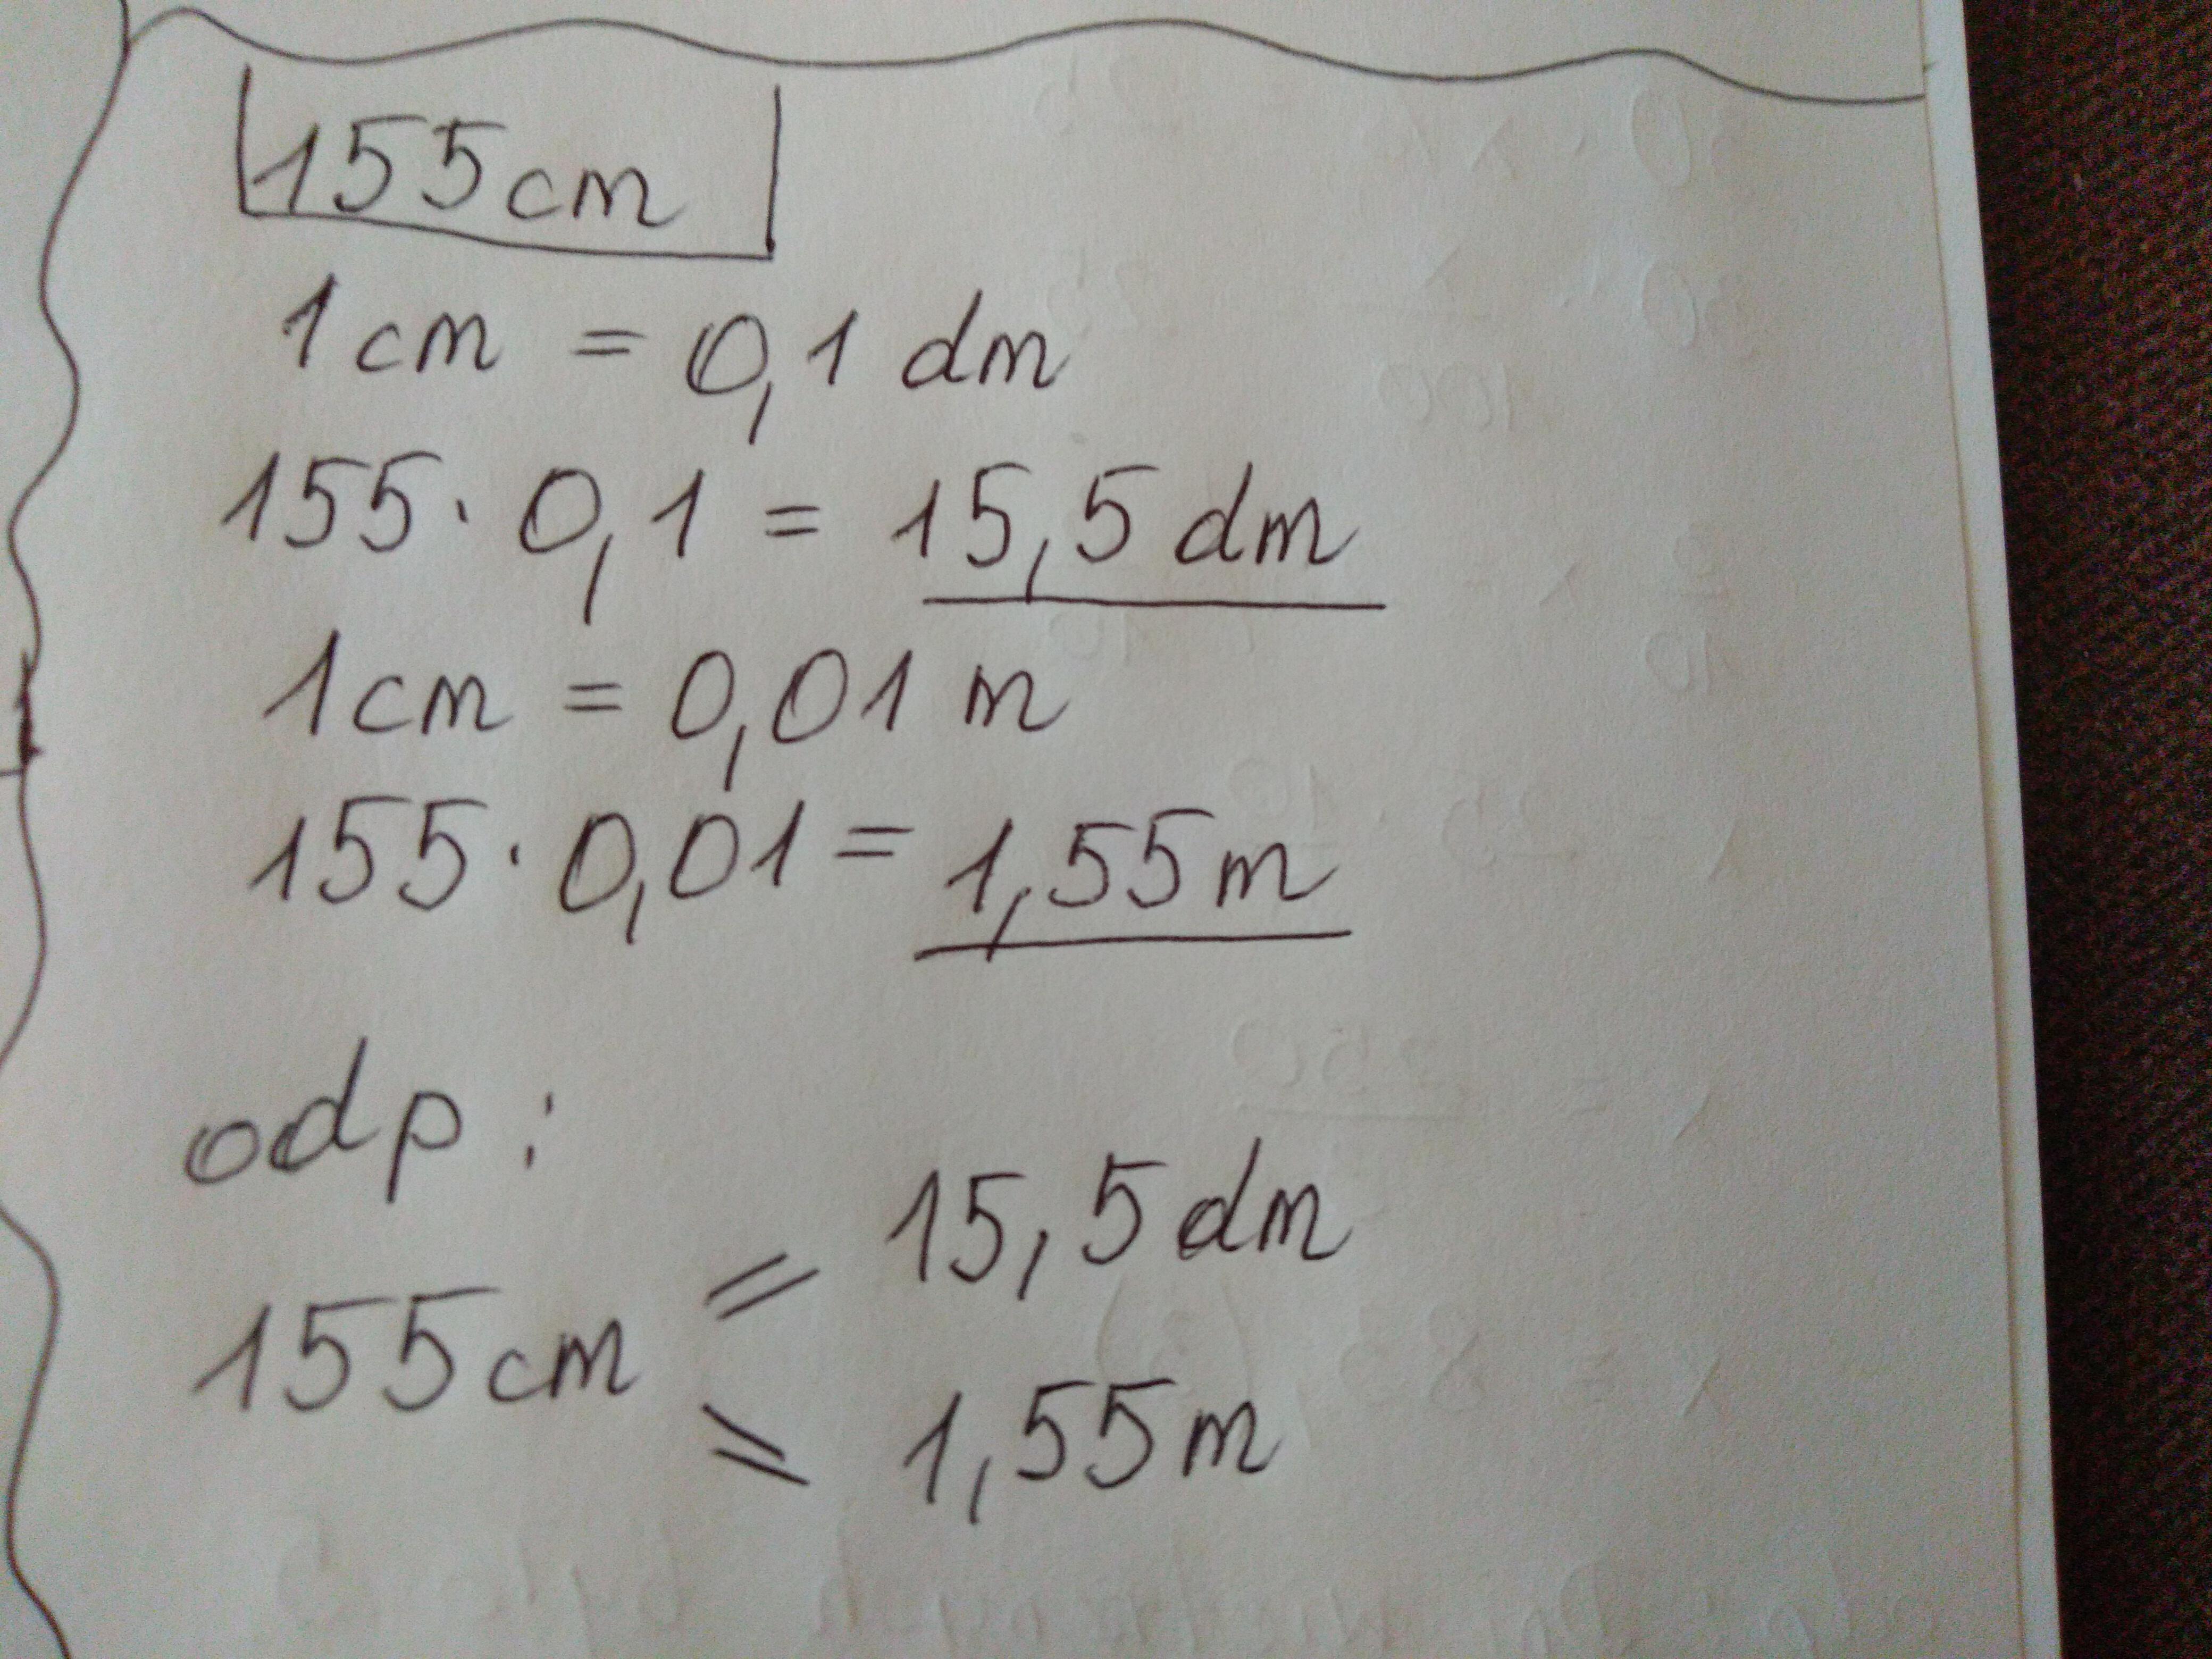 155cm
1cm = 0,1 dm
155 · 0,1 = 15,5 dm
1cm = 0,01 m
155 · 0,01 = 1,55m
odp:
= 15,5dm
155cm
= 1,55m